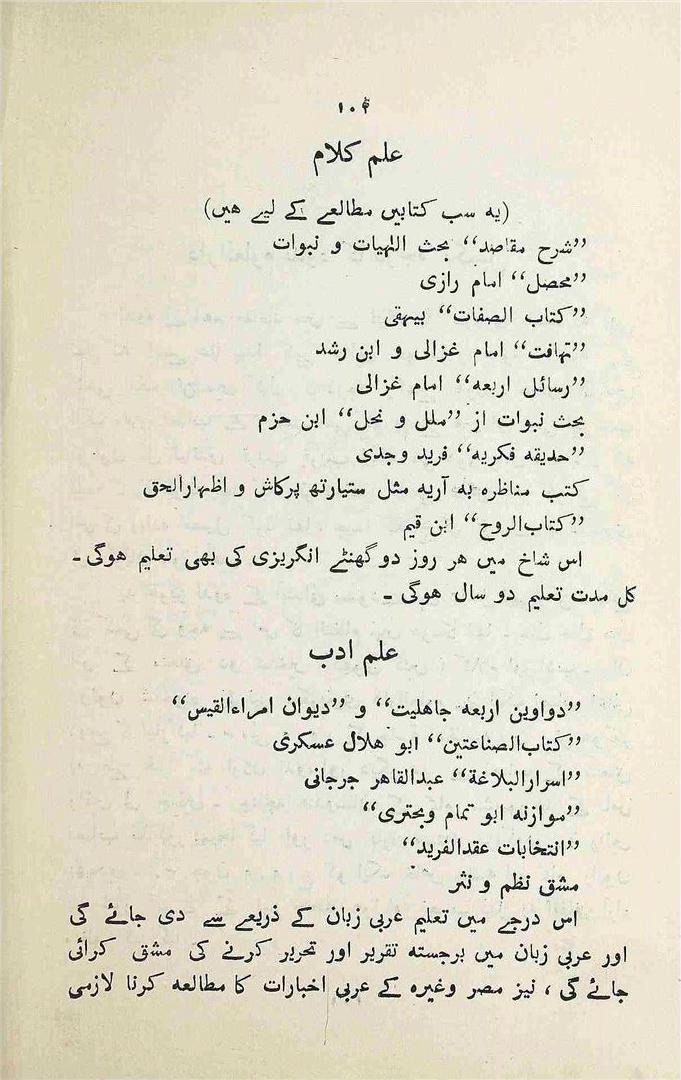 ۱۰۴
علم کلام
(یہ سب کتابیں مطالعے کے لیے ہیں)
”شرح مقاصد“ بحث اللہیات و نبوات
”محصل“ امام رازی
”کتاب الصفات“ بیہقی
”تہافت“ امام غزالی و ابن رشد
”رسائل اربعہ“ امام غزالی
بحث نبوات از ”ملل و نحل“ ابن حزم
”حدیقہ فکریہ“ فرید وجدی
کتب مناظرہ بہ آریہ مثل ستیارتھ پرکاش و اظہارالحق
”کتاب‌الروح“ ابن قیم
اس شاخ میں ہر روز دو گھنٹے انگریزی کی بھی تعلیم ہوگی ـ
کل مدت تعلیم دو سال ہوگی ـ
علم ادب
”دواوین اربعہ جاہلیت“ و ”دیوان امراءالقیس“
”کتاب‌الصناعتین“ ابو ہلال عسکری
”اسرارالبلاغۃ“ عبدالقاہر جرجانی
”موازنہ ابو تمام وبحتری“
”انتخابات عقدالفرید“
مشق نظم و نثر
اس درجے میں تعلیم عربی زبان کے ذریعے سے دی جائے گی
اور عربی زبان میں برجستہ تقریر اور تحریر کرنے کی مشق کرائی
جائے گی ، نیز مصر وغیرہ کے عربی اخبارات کا مطالعہ کرنا لازمی